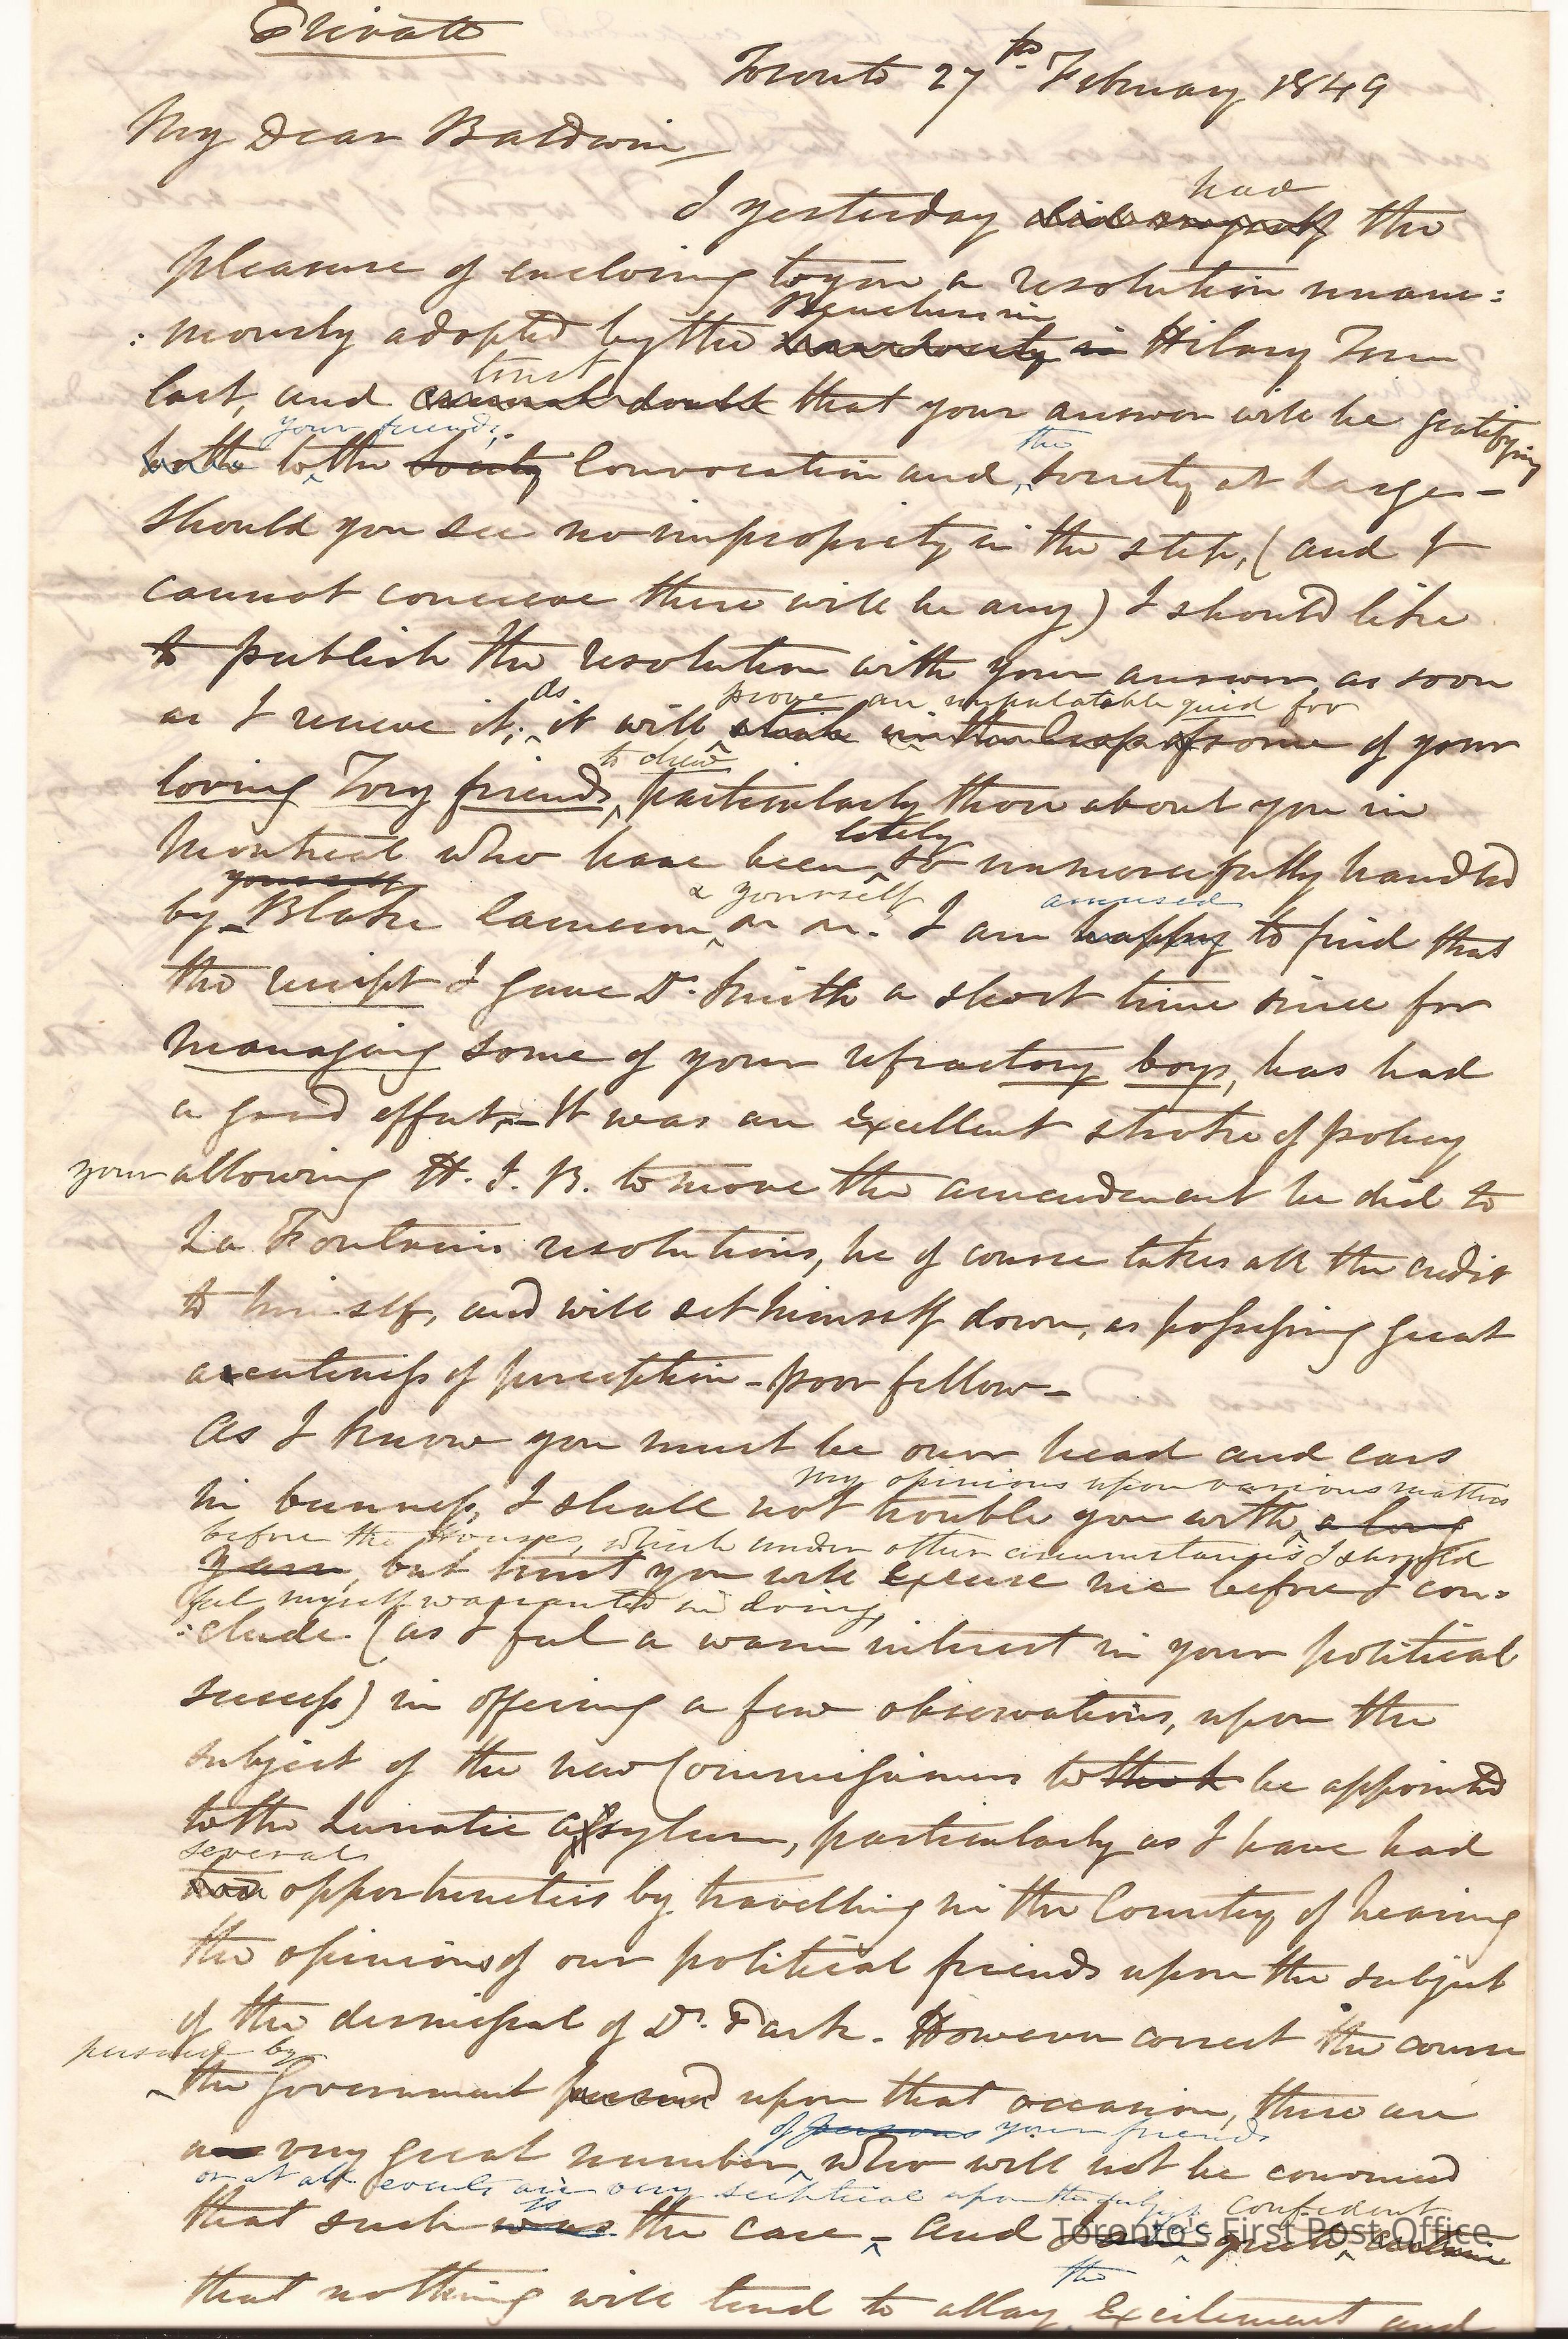 Private
Toronto 27th February 1849
My Dear Baldwin
had
I yesterday did myself the
pleasure of enclosing to you a resolution unani:
Benchers in
:mously adopted by the in Hilary Term
trust
last, and cannot doubt that your answer will be gratifying
your friends, the
both to the Society Convocation and society at large -
should you see no impropriety in the step, (and I
cannot conceive there will be any) I should like
to publish the resolution with your answer, as soon
as prove an unpalatable quid for
as I receive it; it will stick in the crop of some of your
to chew
loving Tory friends, particularly those about you in
lately
Montreal who have been so unmercifully handled
yourself
& yourself amused
by Blake Cameron I am happy to find that
the receipt I gave Dr. Smith a short time since for
managing some of your refractory boys, has had
a good effect. - It was an excellent stroke of policy
your allowing H. J. B. to move the amendment he did to
La Fontain's resolutions, he of course takes all the credit
to himself, and will set himself down, as possessing great
accuteness of perception - poor fellow -
As I know you must be over head and ears
my opinions upon various matters
in business, I shall not trouble you with a long
before the Houses, which under other circumstances I should
yarn, but trust you will excuse me before I con:
feel myself warranted in doing,
:clude. (as I feel a warm interest in your political
success) in offering a few observations, upon the
subject of the new Commissioners to be appointed
to the Lunatic Assylum, particularly as I have had
several
opportuneties by travelling in the Country of hearing
the opinions of our political friends upon the subject
of the dismissal of Dr. Park. However correct the course
pursued by
the Government pursued upon that occasion, there are
of persons your friends
a very great number, who will not be convinced
or at all events are very sceptical upon the subject confident
is
that such was the case - and quite certain
the
that nothing will tend to allay Excitement and
Toronto's First Post Office